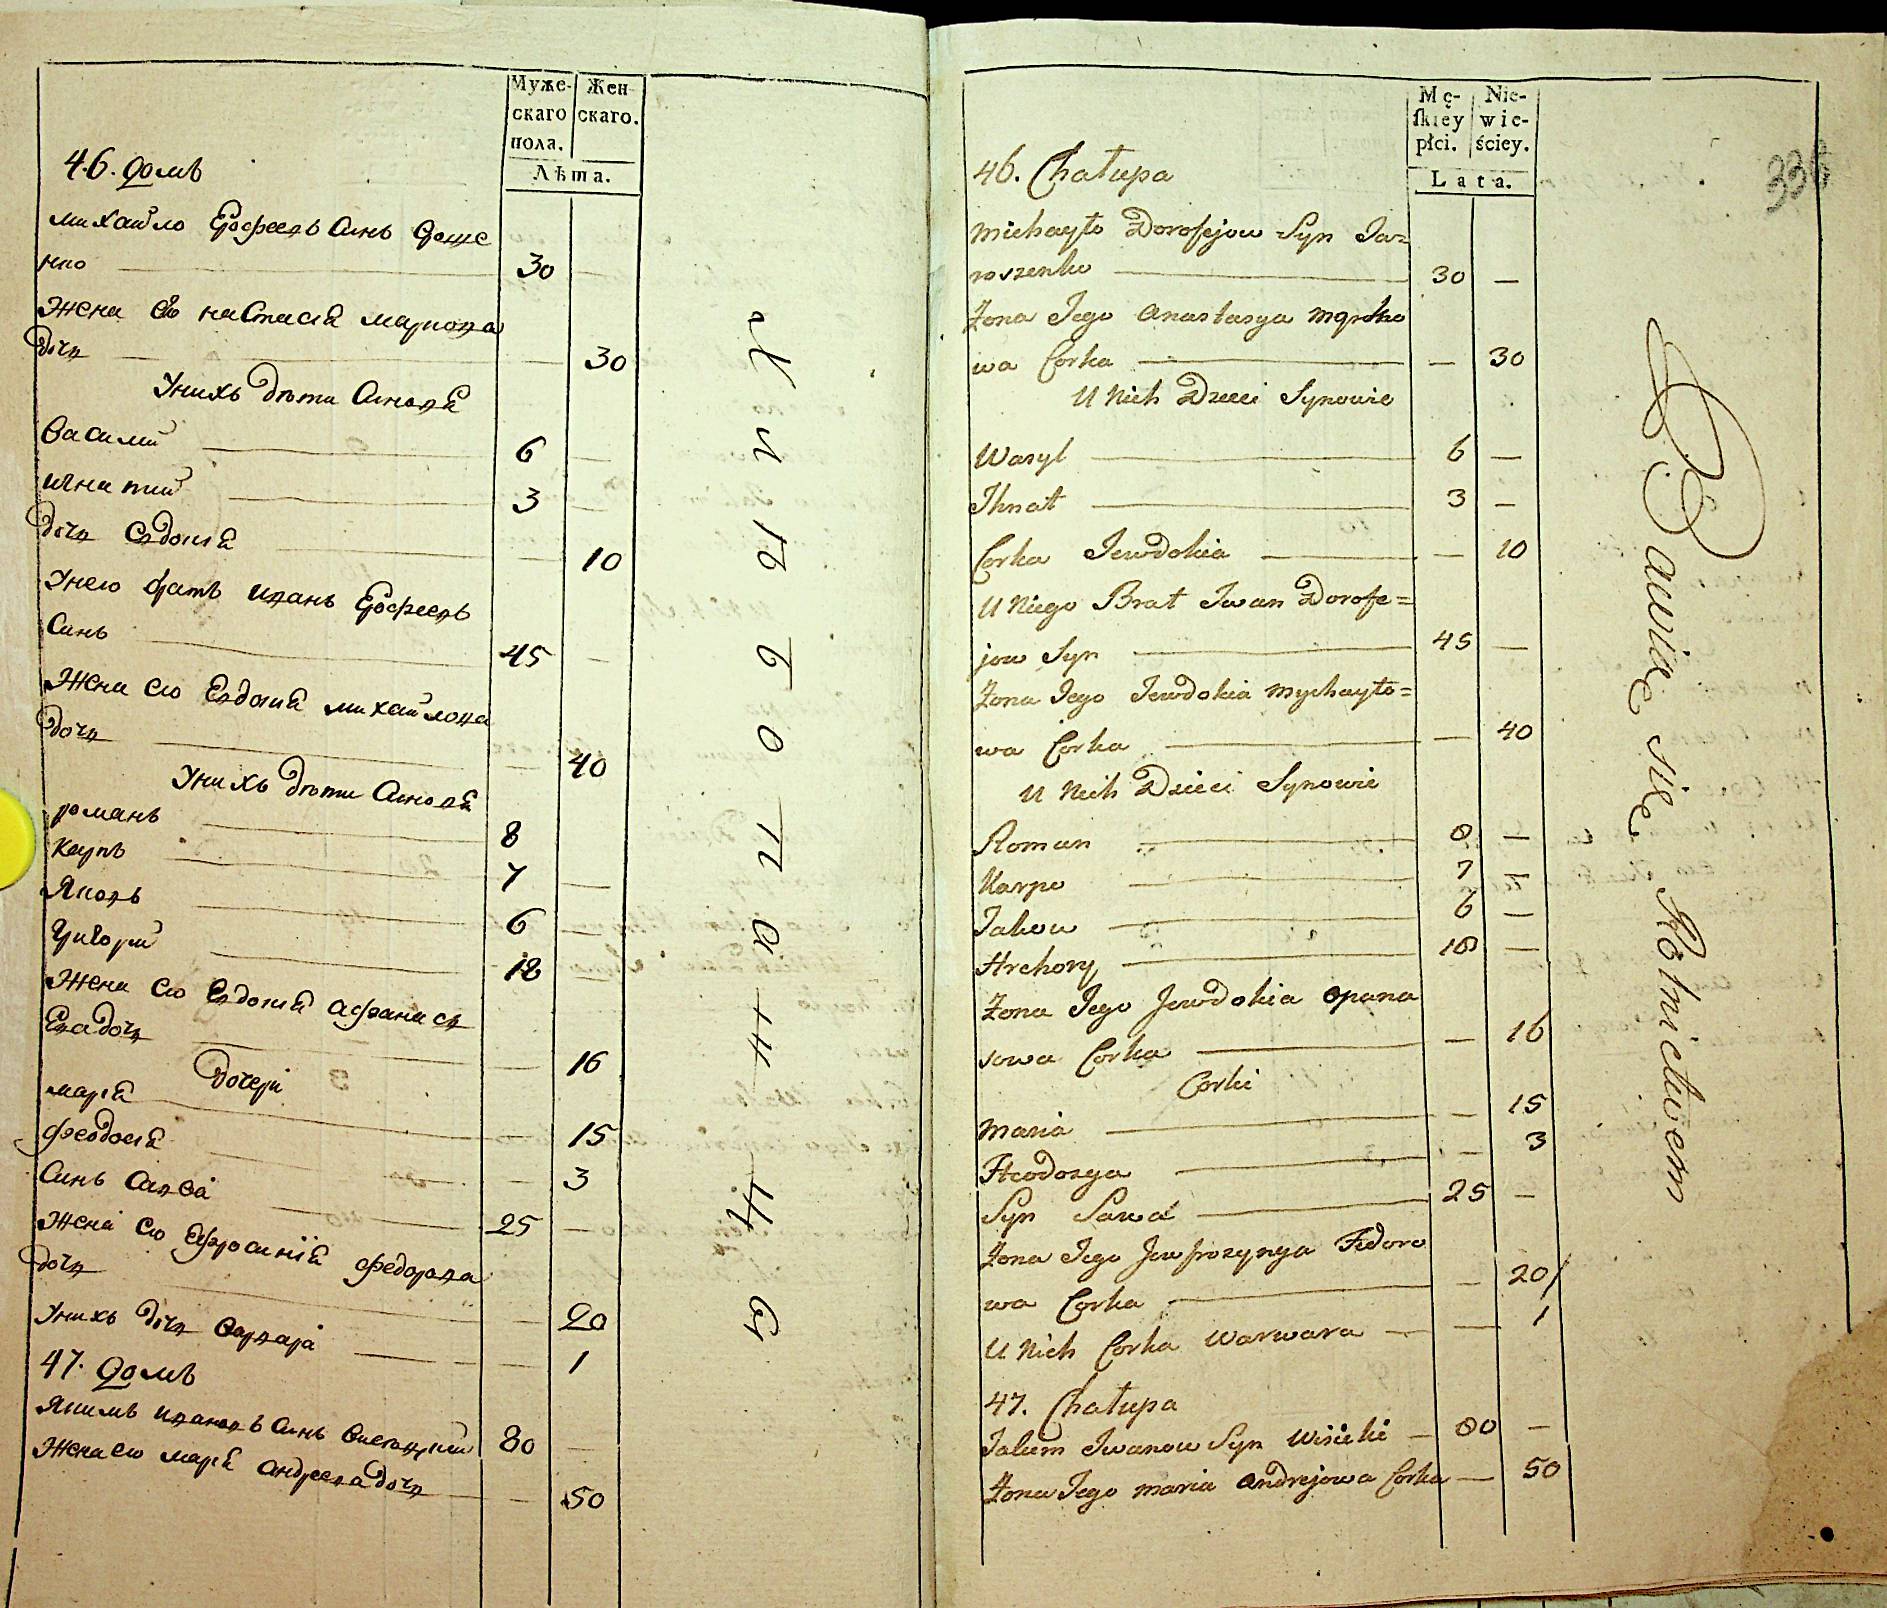 Муже-
скаго
пола.
Жен
скаго.
Лѣта.
46. домъ
михайло Ерофеевъ Синъ
нко 30
Жена его настасия маркова
дочь 30
Унихъ дѣти Синовя
василий 6
игнатий 3
дочь Евдокия 10
Унего братъ иванъ Ерофеевъ
Синъ 45
Жена его Евдокия михайлова
дочь 40
Унихъ дѣти Синовя
романъ 8
карпъ 7
Яковъ 6
григорий 18
Жена его Евдокия афанась
Ева дочь 16
дочери
мария 15
феодосия 3
Синъ Сава 25
Жена его Ефросиния федорова
дочь 20
Унихъ дочь варвара 1
47. домъ
Якимъ ивановъ Синъ 80
Жена его мария андреева дочь 50
хлѣбопашц
Mę-
skiey
płci.
Nie-
wie-
ściey.
Lata.
336
46. Chałupa
Michayło Dorofejow Syn Ja=
roszenko 30 —
Żona Jego Anastasya Marko
wa Corka — 30
U Nich Dzieci Synowie
Wasyl 6 —
Ihnat 3 —
Corka Jewdokia — 10
U Niego Brat Iwan Dorofe=
jow Syn 45 —
Żona Jego Jewdokia Mychayło=
wa Corka — 40
U Nich Dzieci Synowie
Roman 8 —
Karpo 7 —
Jakow 6 —
Hrehory 18 —
Żona Jego Jewdokia Opana
sowa Corka — 16
Corki
Maria — 15
Fteodozya — 3
Syn Sawa 25 —
Żona Jego Jewfrozynya Fedoro
wa Corka — 20
U Nich Corka Warwara — 1
47. Chałupa
Jakim Iwanow Syn Wisicki — 80 —
Żona Jego Maria Andrejowa Corka — 50
Bawią się Rolnictwem